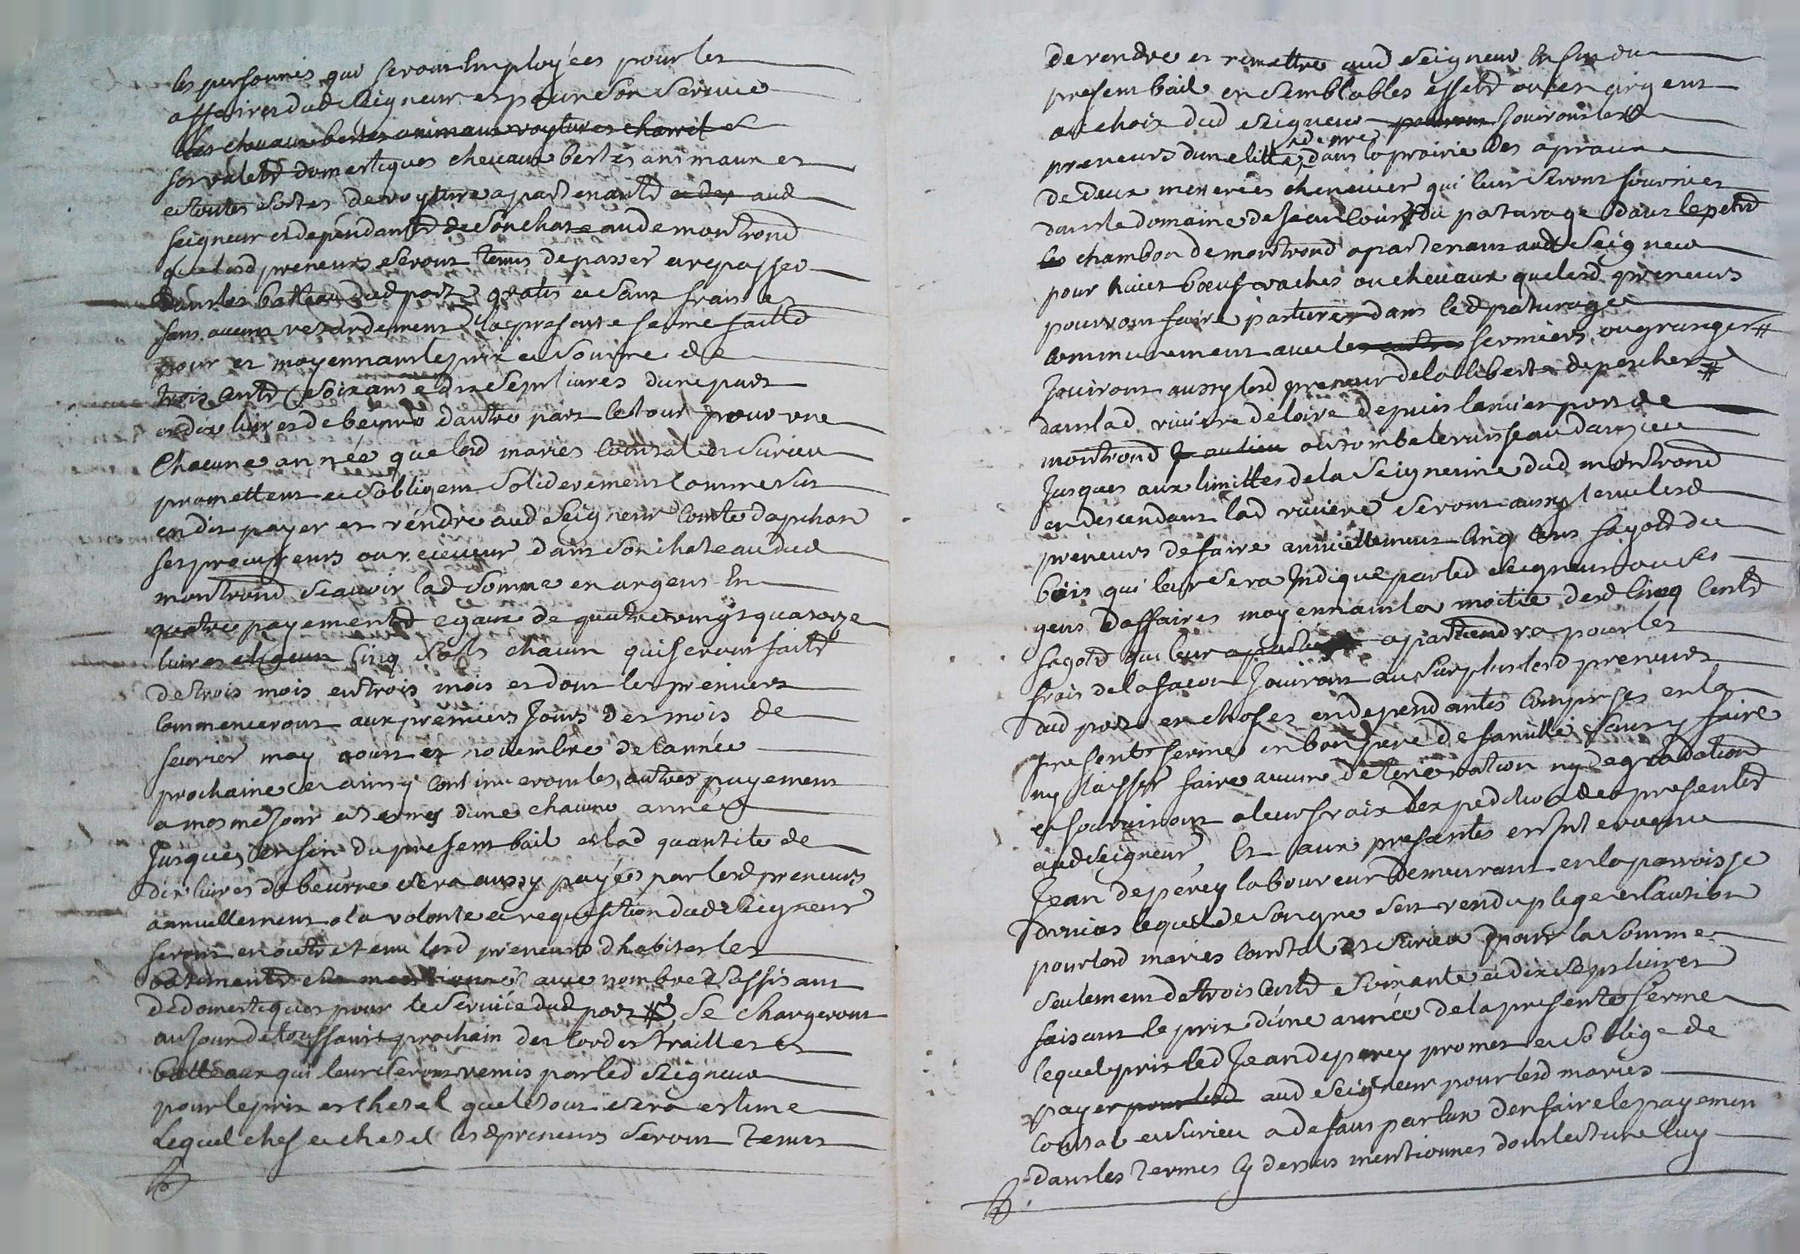 les personnes qui seront Employées pour les
affaires dud seigneur et pour son service
les chevaux bestes animaux voytures charret &
ses valets domestiques chevaux bestes animaux et
et toutes sortes de voyture apartenants aud
seigneur et dependants de son chateau de montrond
que lesd preneurs seront tenus de passer et repasser
dans les batteaux dud port gratis et sans frais &
sans aucun retardement la presente ferme faitte
pour et moyennant le prix et somme de
trois cents soixante dix sept livres d'une part
et dix livres de beurre dautre part le tout pour une
Chacune année que lesd mariés Cointal et surieu
promettent et sobligent solidairement comme sus
est dit payer et rendre aud seigneur Comte dapchon
ses procureurs ou receveur dans son chateau dud
montrond scavoir lad somme en argent En
quatre payements egaux de quatre vingt quatorze
livres cinq sols chacun qui seront faits
de trois mois en trois mois et dont les premiers
commenceront aux premiers Jours des mois de
feuvrier may aoust et novembre de l'année
prochaine et ainsy continueront les autres payement
a mesme Jour et termes d'une chacune année
Jusques en fin du present bail et lad quantité de
dix livres de beurre sera aussy payée par lesd preneurs
annuellement a la volonté et requisition dud seigneur
seront en outre tenu lesd preneurs d'habiter les
batiments avec nombre suffisant
de domestiques pour le service dud port # Se chargeront
au Jour de toussaint prochain des cordes trailles et
batteaux qui leur seront remis par led seigneur
pour le prix et chetel que le tout sera estimé
Lequel chef et chetel lesd preneurs seront tenus
de rendre et remettre aud seigneur En fin du
present bail en semblables effets ou en argent
au choix dud seigneur Jouiront lesd
preneurs dune litte dans la prairie des
de deux mesterées chenevier qui leur seront fournies
dans le domaine de Jean Cour du paturage dans le petit
chambon de montrond apartenant aud Seigneur
pour huict bœufs vaches ou chevaux que lesd preneurs
pourront faire pasturer dans led paturage
communement avec les fermiers ou granger #
Jouiront aussy lesd preneur de la liberté de pescher #
dans lad riviere de loire depuis lancien port de
montrond au lieu ou tombe le ruisseau danzieu
Jusques aux limittes de la seigneurie dud montrond
en descendant lad riviere seront aussy tenu lesd
preneurs de faire annuellement Cinq cens fagots du
bois qui leur sera Indiqué par led seigneur ou ses
gens d'affaires moyennant la moitié desd Cinq Cents
fagots qui leur apartiendra pour les
frais de la facon Jouiront au surplus lesd preneurs
dud port et choses en dependantes comprises en la
presente ferme en bon pere de famille sans y faire
ny laisser faire aucune deterioration ny degradations
et fourniront a leurs fraix lexpedition des presentes
aud seigneur, Et aux presantes est Intervenu
Jean deperey laboureur demeurant en la parroisse
lequel de son gre sest rendu plege et caution
pour lesd mariés Cointal et surieu pour la somme
seulement de trois cents soixante et dix sept livres
faisant le prix d'une année de la presente ferme
lequel prix led Jean deperey promet et soblige de
payer pour lesd aud seigneur pour lesd mariés
Cointal et surieu a defaut par eux d'en faire le payement
dans les termes cy dessus mentionnes dont lecture luy